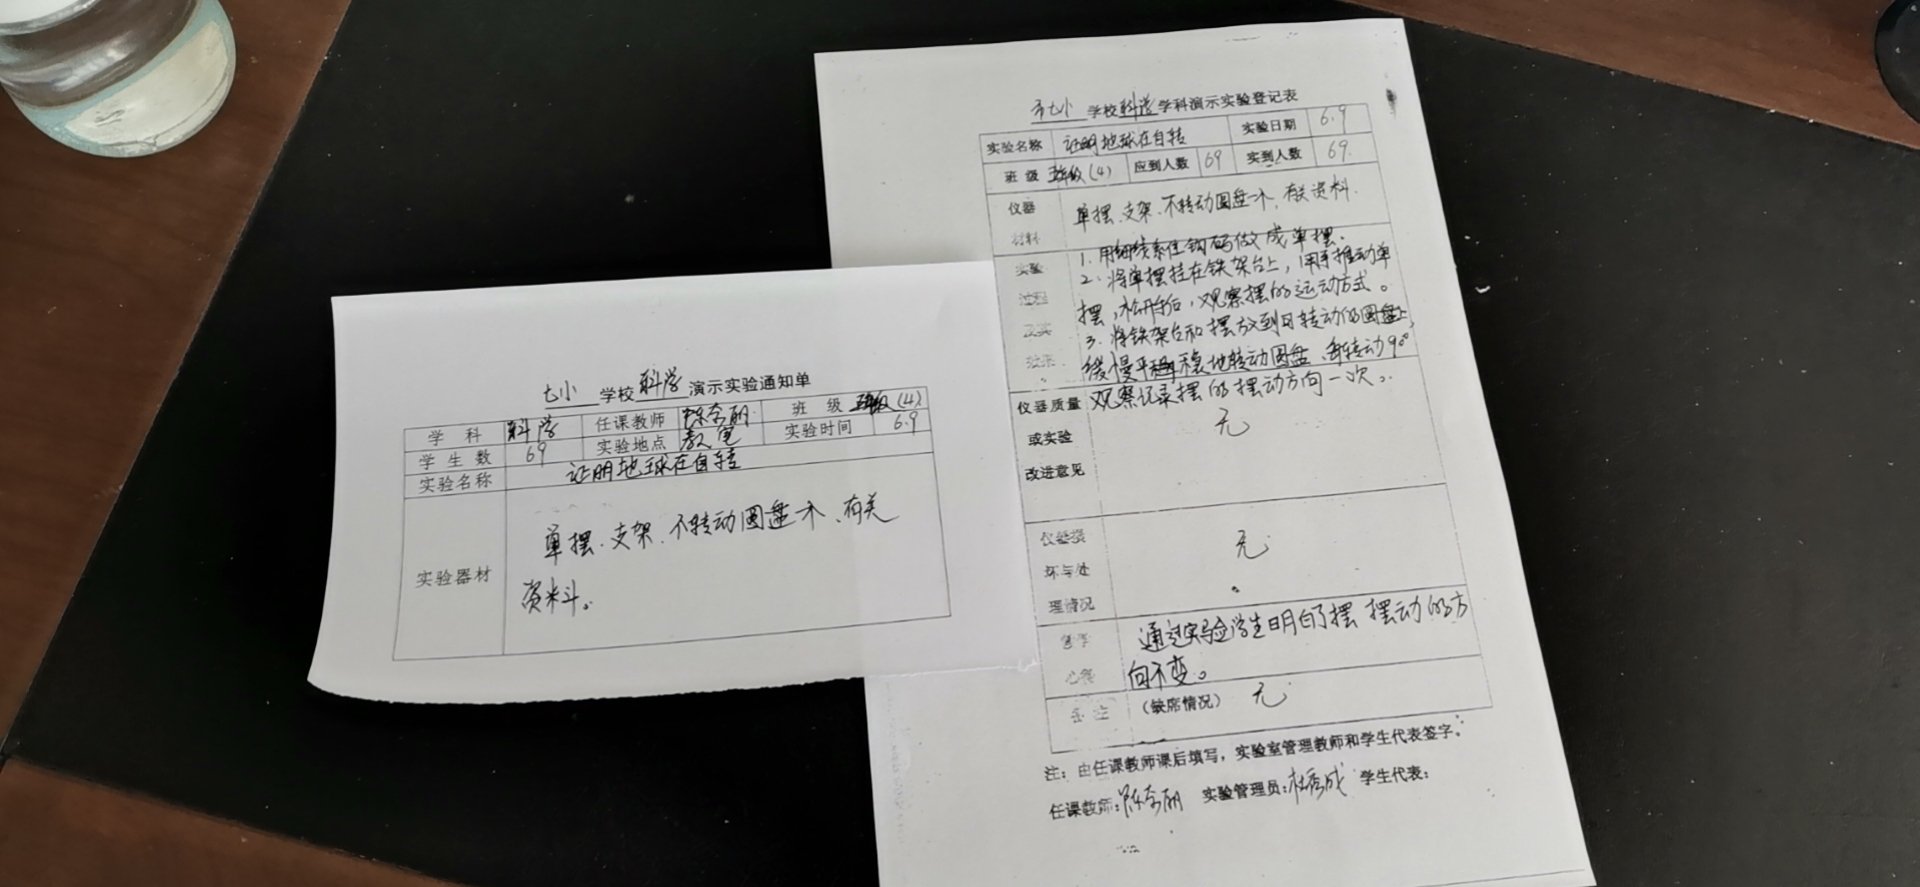 七小 学校 科学 演示实验通知单
学 科 科学 任课教师 班 级 五年级(4)
学生数 69 实验地点 教室 实验时间 6.9
实验名称 证明地球在自转
实验器材 单摆、支架、不转动圆盘一个、有关
资料。
市七小 学校科学学科演示实验登记表
实验名称 证明地球在自转 实验日期 6.9
班 级 五年级(4) 应到人数 69 实到人数 69
仪器
材料
单摆、支架、不转动圆盘一个、有关资料.
实验
过程
及实
效果
1. 用细线系住钩码做成单摆.
2. 将单摆挂在铁架台上,用手推动单
摆,松开后,观察摆的运动方式。
3. 将铁架台和摆放到可转动的圆盘上,
缓慢平稳地转动圆盘,每转动90°
观察记录摆的摆动方向一次。
仪器质量
或实验
改进意见
无
仪器损
坏与处
理情况
无
教学
心得
通过实验学生明白了摆 摆动的方
向不变。
备 注 (缺席情况) 无
注:由任课教师课后填写,实验室管理教师和学生代表签字。
任课教师: 实验管理员: 学生代表: